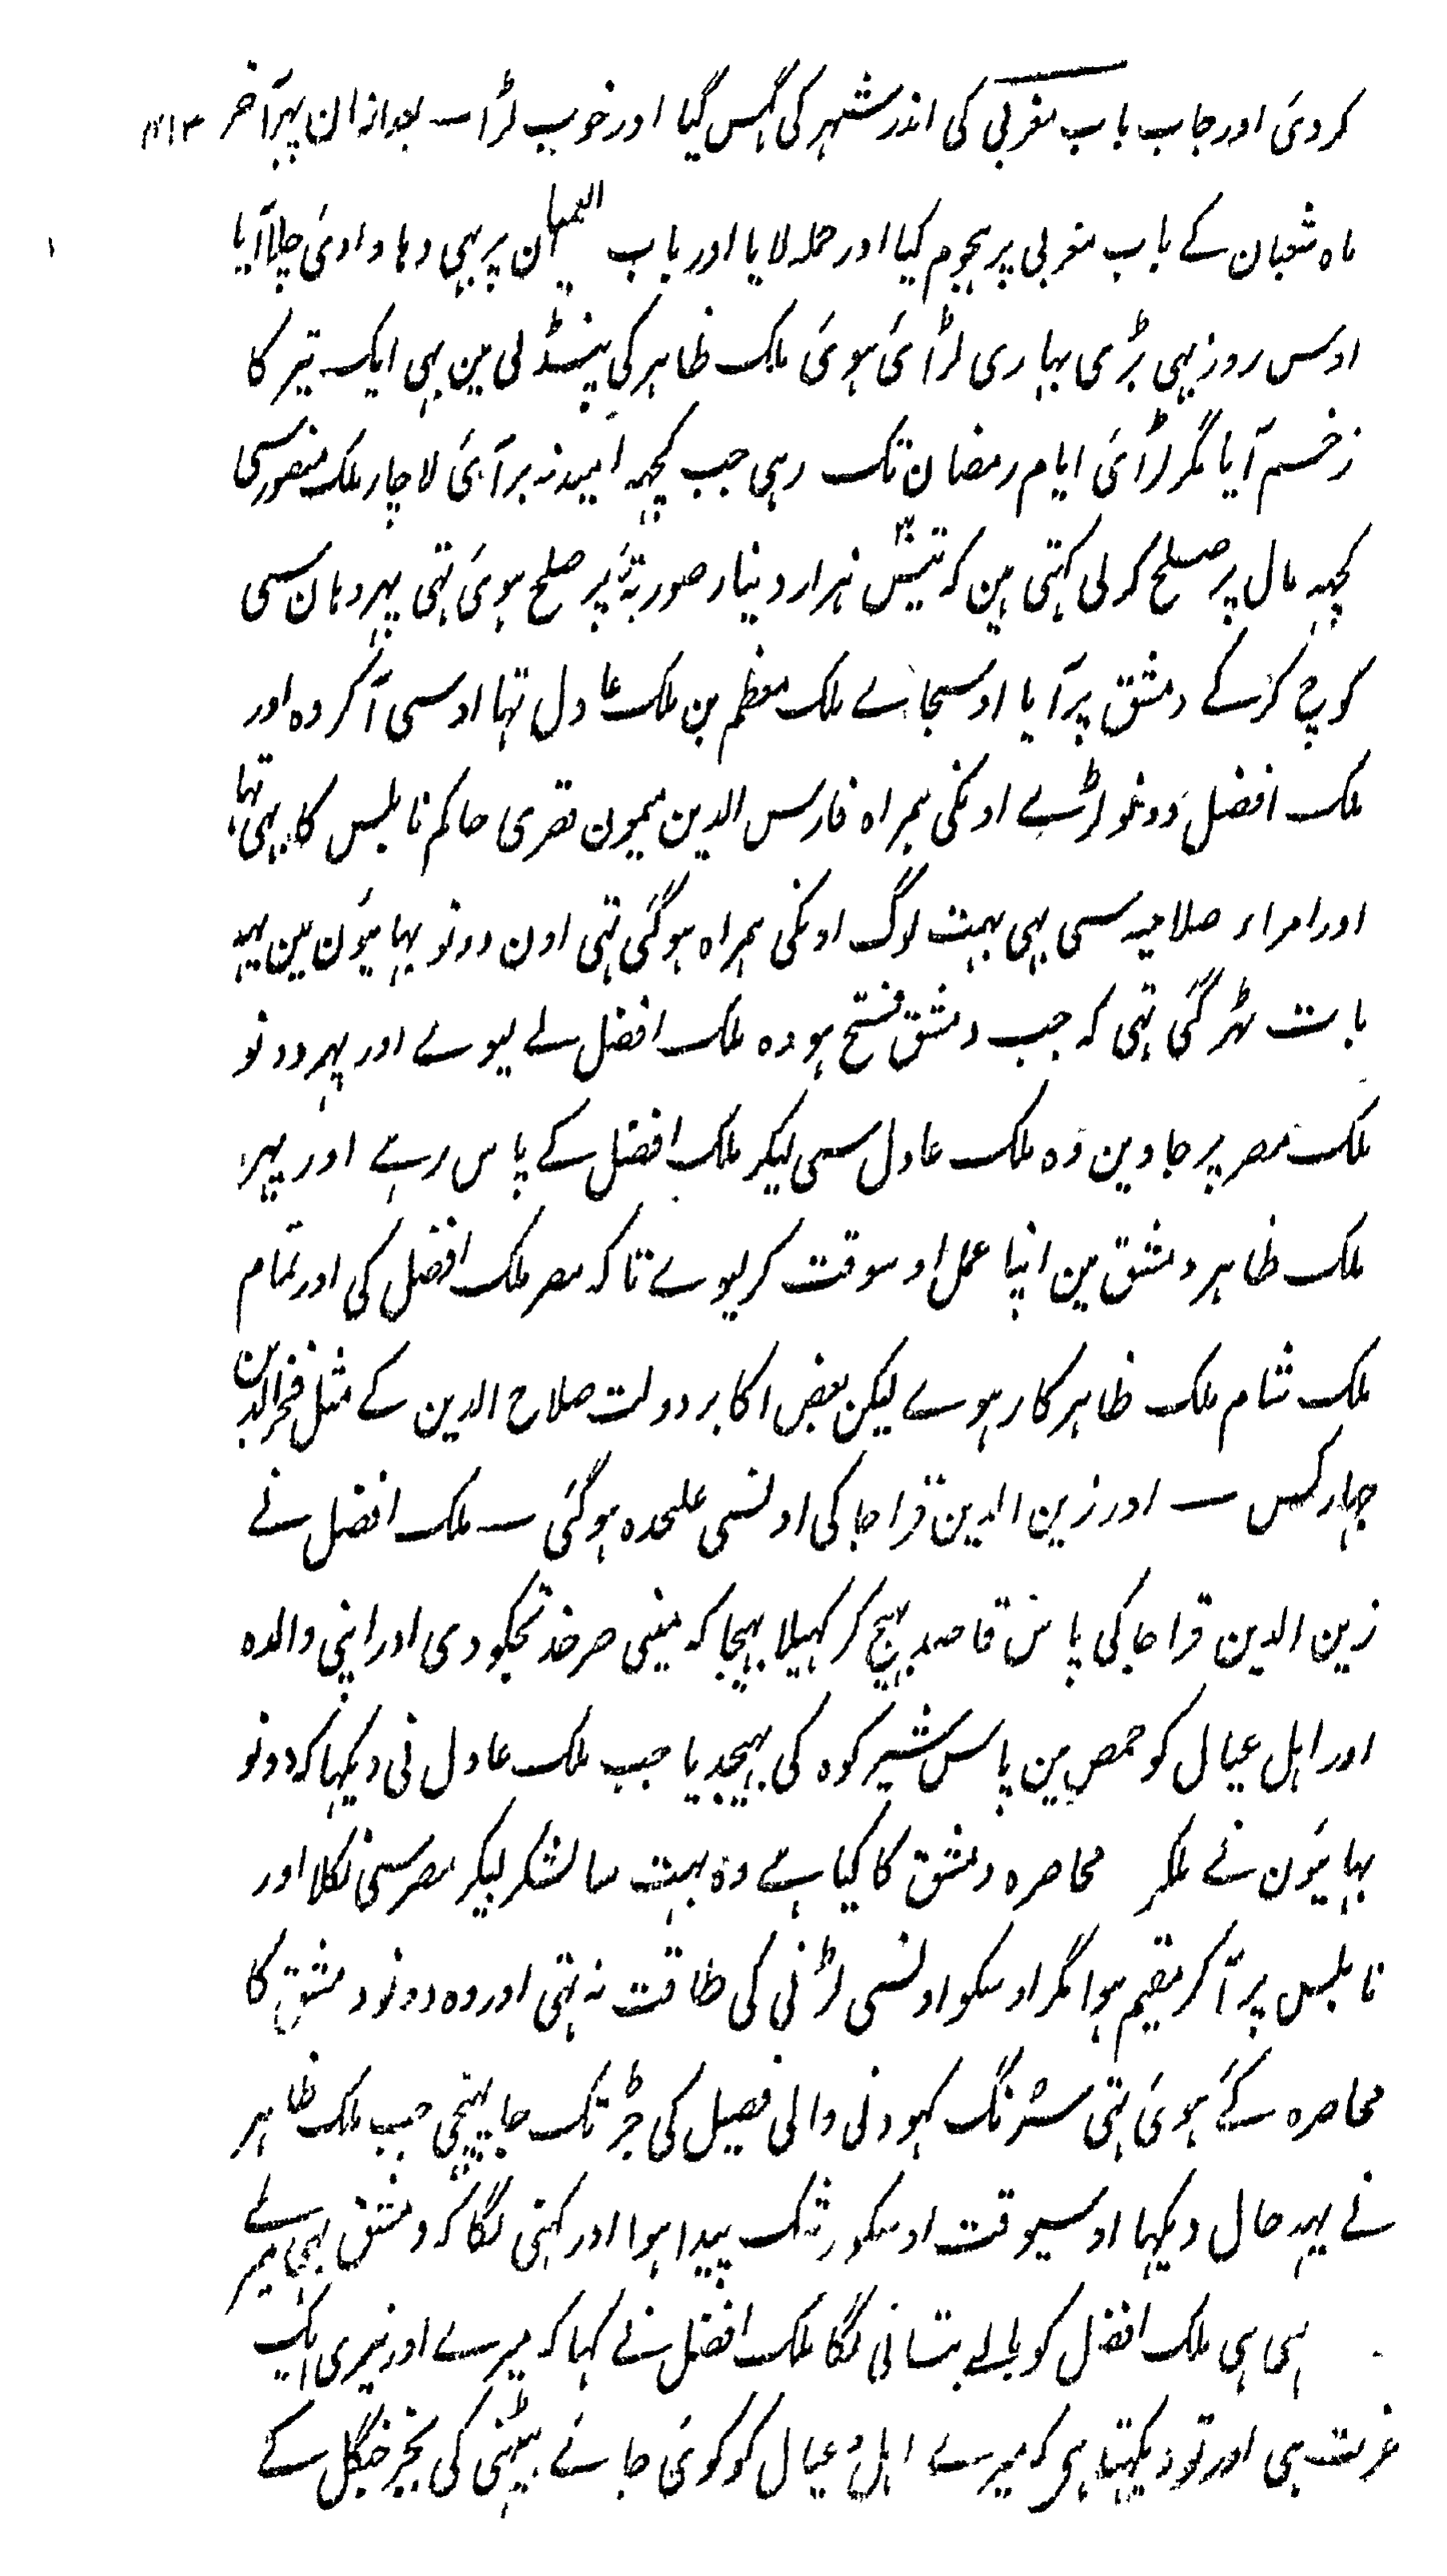 کردئ اور جاب باب مغربی کی اندر شہر کی گھس گیا اور خوب لڑا۔ بعد ازان پہر آخر ۴۱۳
ماہ شعبان کے باب مغربی پر ہجوم کیا اور حملہ لایا اور باب پر بہی دہاوادئ چلا آیا
اوس روز بہی بڑی بہاری لڑائ ہوئ ملک ظاہر کی پنڈلی مین بہی ایک تیر کا
زخم آیا مگر لڑائ ایام رمضان تک رہی جب کچہہ امید نہ بر آئ لاچار ملک منصور سی
کچہہ مال پر صلح کر لی کہتی ہین کہ تیس ہزار دینار صوریہ پر صلح ہوئ تہی پہر وہان سی
کوچ کر کے دمشق پر آیا اوسجا نے ملک معظم بن ملک عادل تہا اوسی آکر وہ اور
ملک افضل دونو لڑے اونکی ہمراہ فارس الدین میمون قصری حاکم نابلس کا بہی تہا
اور امراء صلاحیہ سی بہی بہت لوگ اونکی ہمراہ ہو گئ تہی اون دونو بہائیون مین یہہ
بات ٹہر گئ تہی کہ جب دمشق فتح ہو وہ ملک افضل لے لیوے اور پہر دونو
ملک مصر پر جاوین وہ ملک عادل سی لیکر ملک افضل کے پاس رہے اور پہر
ملک ظاہر دمشق مین اپنا عمل اوسوقت کر لیوے تاکہ مصر ملک افضل کی اور تمام
ملک شام ملک ظاہر کا رہوے لیکن بعض اکابر دولت صلاح الدین کے مثل فخر الدین
جہارکس ۔ اور زین الدین قراجا کی اونسی علحدہ ہو گئ ۔ ملک افضل نے
زین الدین قراجا کی پاس قاصد بہیج کر کہیلا بہیجا کہ مینی صرخد تجکو دی اور اپنی والدہ
اور اہل عیال کو حمص مین پاس شیرکوہ کی بہیجدیا جب ملک عادل نی دیکہا کہ دونو
بہائیون نے ملکر محاصرہ دمشق کا کیا ہے وہ بہت سا لشکر لیکر مصر سی نکلا اور
نابلس پر آکر مقیم ہوا مگر اوسکو اونسی لڑنی کی طاقت نہ تہی اور وہ دونو دمشق کا
محاصرہ کئے ہوئ تہی سرنگ کہودنی والی فصیل کی جڑ تک جا پہنچی جب ملک ظاہر
نے یہہ حال دیکہا اوسیوقت اوسکو رشک پیدا ہوا اور کہنی لگا کہ دمشق بہی میرے
ہی ہی ملک افضل کو بالے بتانی لگا ملک افضل نے کہا کہ میرے اور تیری ایک
عزت ہی اور تو دیکہتا ہی کہ میرے اہل و عیال کو کوئ جا نے بیٹہنی کی بجز جنگل کے